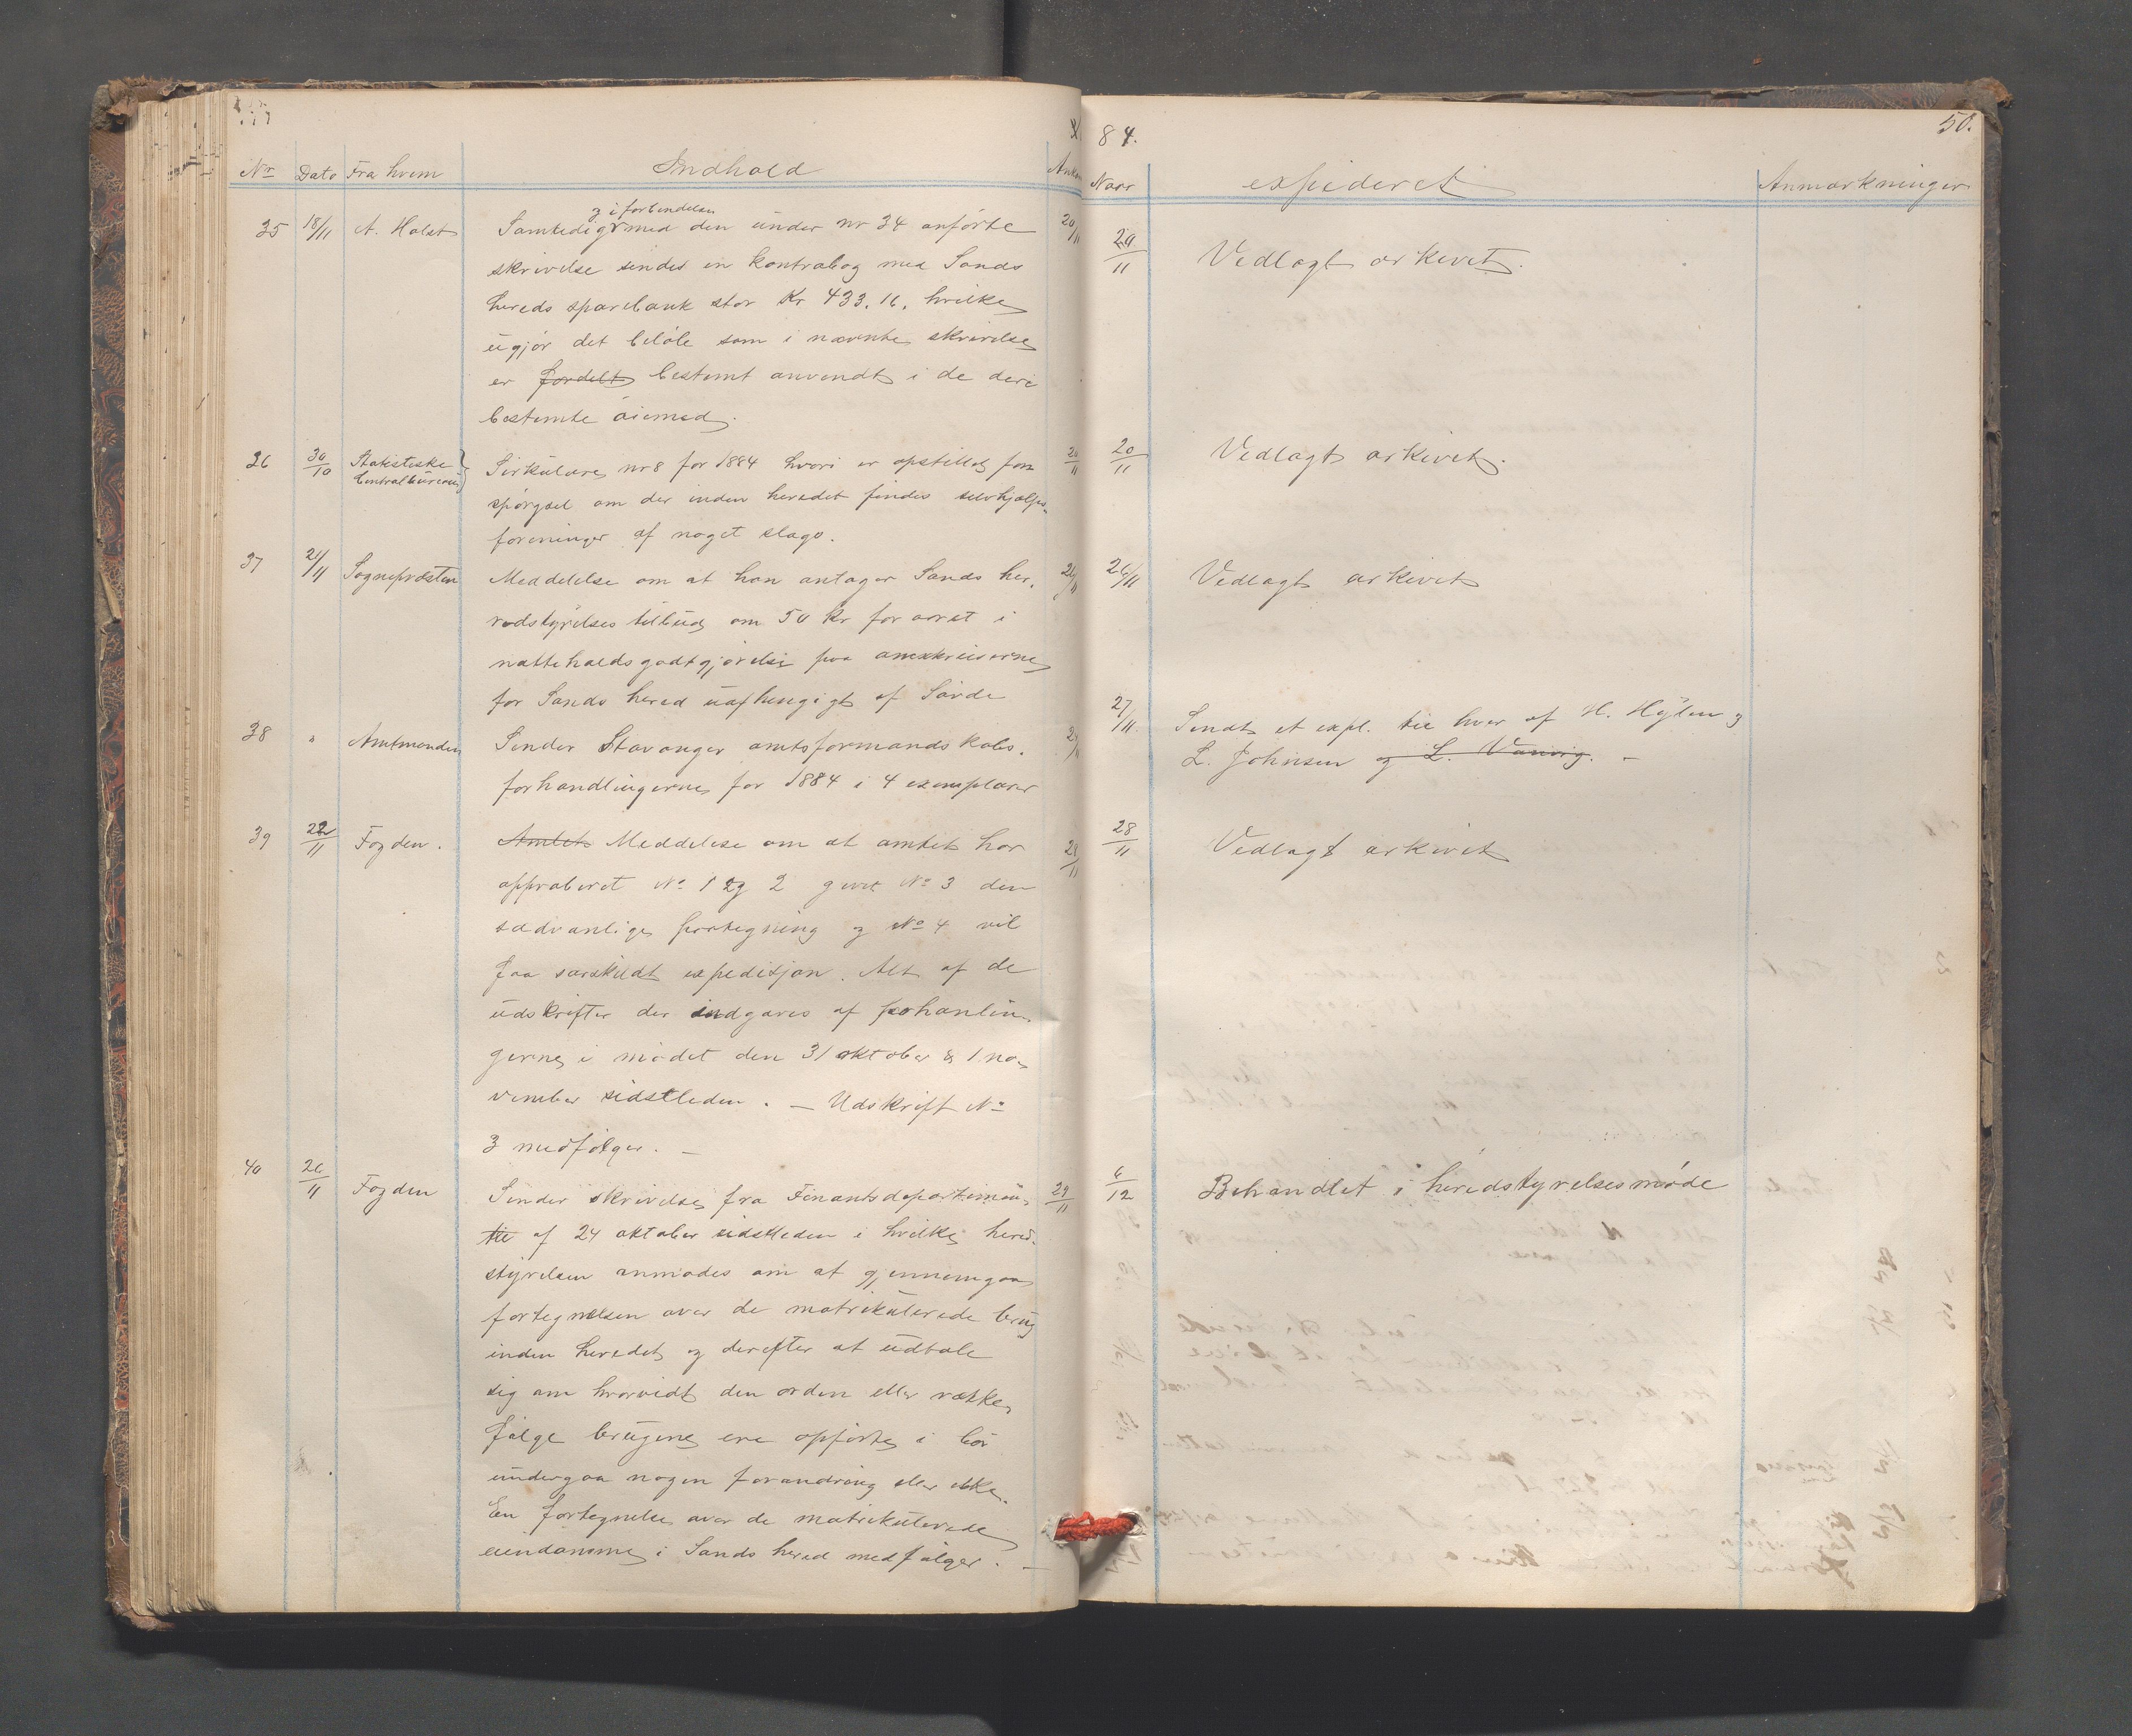 84.
50.
No Dato Fra hvem Indhold Ankom Naar expederet Anmærkninger
35 18/11 A. Holst Samtidig og i forbindelse med den under nr 34 anførte 20/11 20/11 Vedlagt arkivet.
skrivelse sendes en kontrabog med Sands
hereds sparebank stor Kr 433.16. hvilke
ugjør det beløb som i nævnte skrivelse
er fordelt bestemt anvendt i de deri
bestemte øiemed.
36 30/10 Statistiske Centralbureau Sirkulære nr 8 for 1884 hvori er opstillet fore 20/11 20/11 Vedlagt arkivet.
spørgsel om der inden heredet findes selvhjælps-
foreninger af noget slags.
37 21/11 Sognepræsten Meddelelse om at han antager Sands her- 26/11 26/11 Vedlagt arkivet
redstyrelses tilbud om 50 Kr for aaret i
natteholdsgodtgjørelse paa annexreiserne
for Sands hered uafhengigt af Søvde
38 " Amtmanden Sender Stavanger amtsformandskabs- 27/11 27/11 Sendt et expl. til hver af H. Hylen og
forhandlingerne for 1884 i 4 exemplarer L. Johnsen og L. Vanvig. —
39 22/11 Fogden. Amtets Meddelese om at amtet har 28/11 28/11 Vedlagt arkivet
approberet No 1 og 2 givet No 3 den
sædvanlige paategning og No 4 vil
faa særskildt expedisjon. Alt af de
udskrifter der indgaves af forhanlin-
gerne i mødet den 31 oktober & 1 no-
vember sidstleden. — Udskrift No
3 medfølger. —
40 26/11 Fogden Sender skrivelse fra Finantsdepartemen- 29/11 6/12 Behandlet i heredstyrelsesmøde
tet af 24 oktober sidstleden i hvilke hered-
styrelsen anmodes om at gjennemgaa
fortegnelsen over de matrikulerede brug
inden heredet og derefter at udtale
sig om hvorvidt den orden eller række-
følge brugene ere opførte i bør
undergaa nogen forandring eller ikke.
En fortegnelse over de matrikulerede
eiendomme i Sands hered medfølger. —